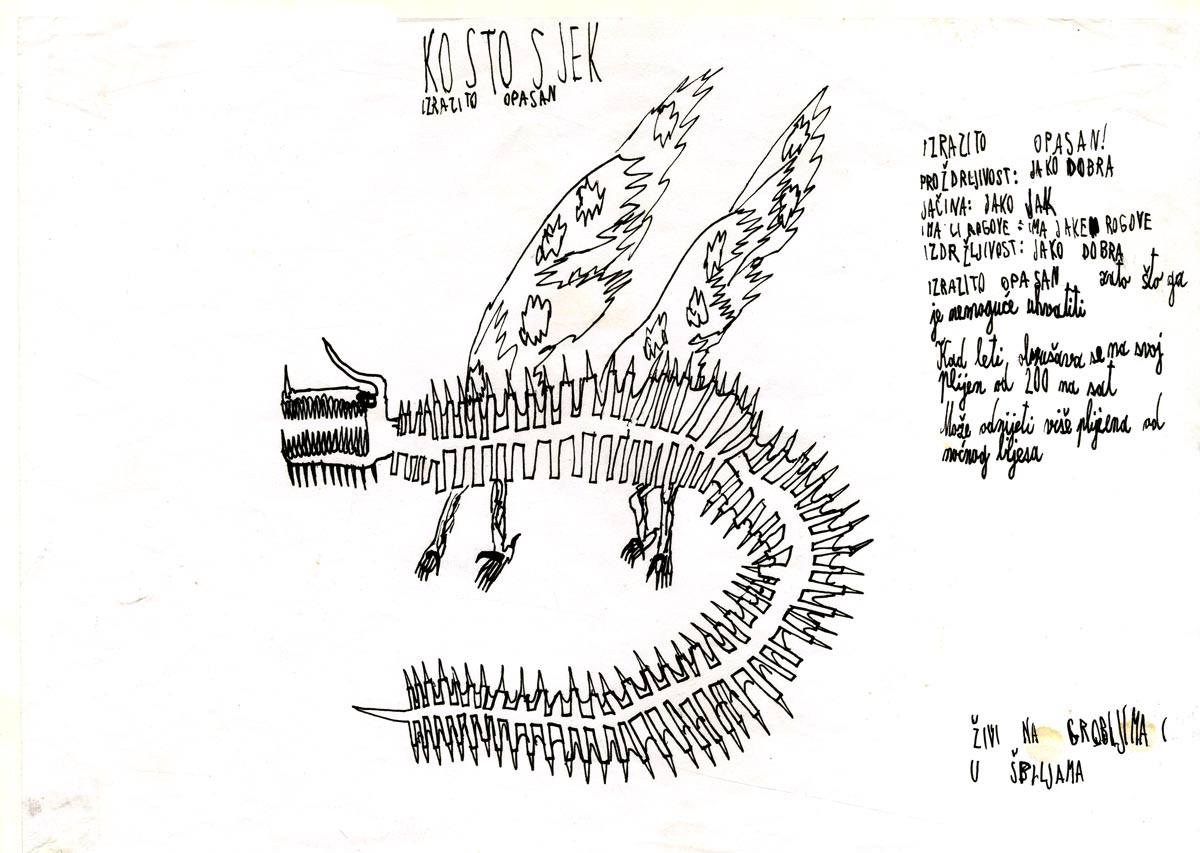 KOSTOSJEK
IZRAZITO OPASAN
IZRAZITO OPASAN!
PROŽDRLJIVOST: JAKO DOBRA
JAČINA: JAKO JAK
IMA LI ROGOVE: IMA JAKE ROGOVE
IZDRŽLJIVOST: JAKO DOBRA
IZRAZITO OPASAN zato što ga
je nemoguće uhvatiti
Kad leti, obrušava se na svoj
plijen od 200 na sat
Može odnijeti više plijena od
noćnog bijesa
ŽIVI NA GROBLJIMA I
U ŠPILJAMA